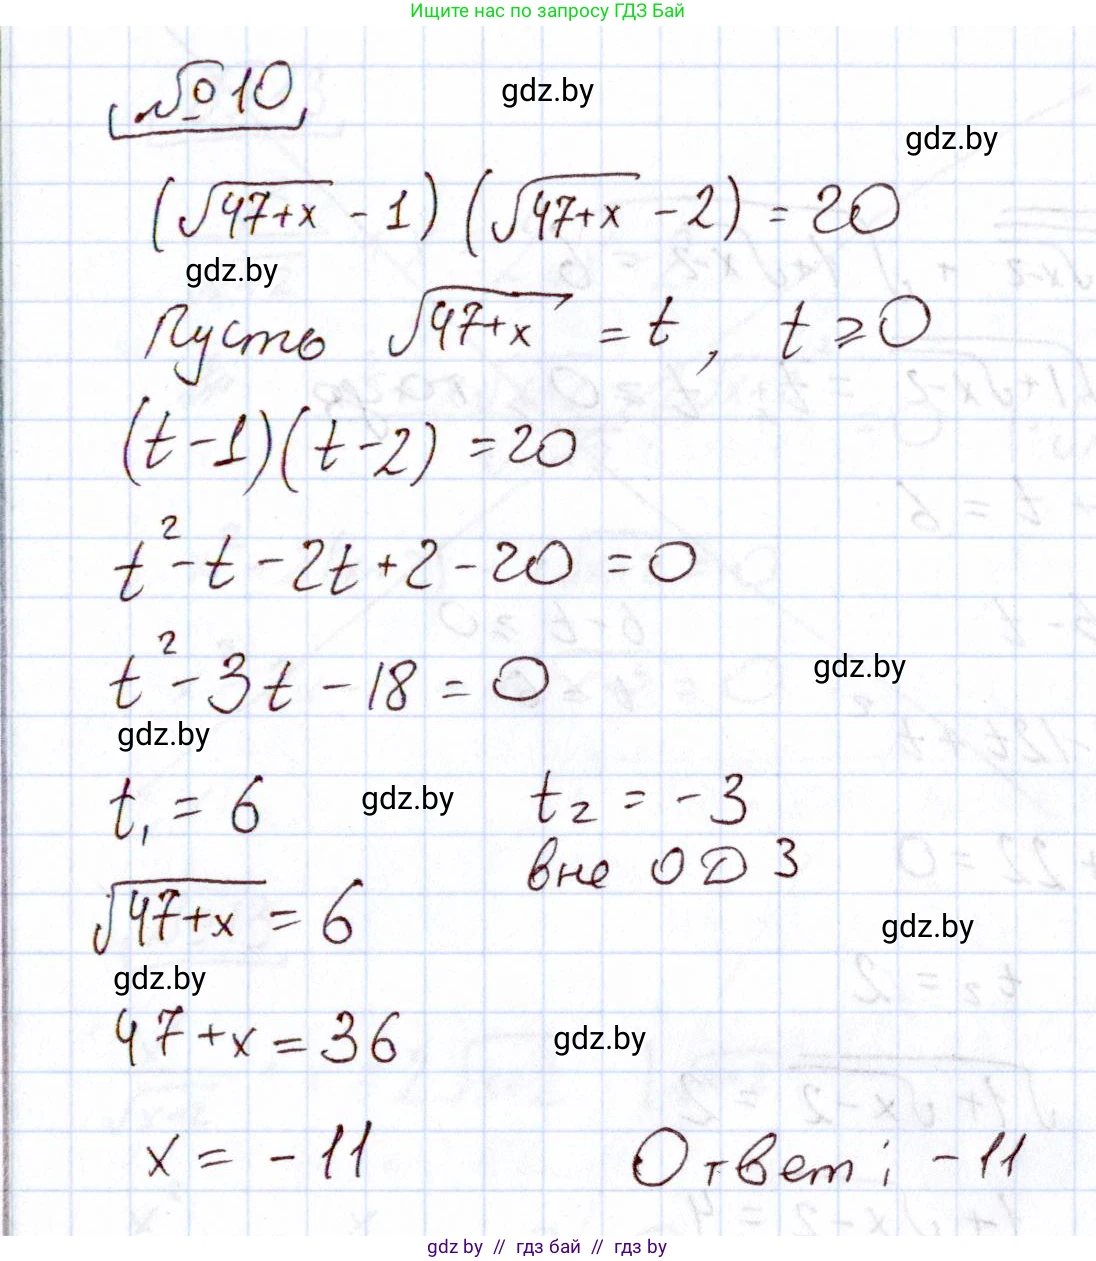 Ищите нас по запросу ГДЗ Бай
№10
gdz.by
gdz.by
(√47+x - 1) (√47+x - 2) = 20
gdz.by
Пусть √47+x = t, t ⩾ 0
(t-1)(t-2) = 20
t² - t - 2t + 2 - 20 = 0
t² - 3t - 18 = 0
gdz.by
gdz.by
t₁ = 6 gdz.by t₂ = -3
вне ОДЗ
√47+x = 6
gdz.by
gdz.by
47+x = 36
gdz.by
x = -11 Ответ: -11
gdz.by // гдз бай // гдз by